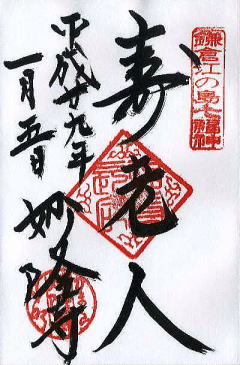 鎌倉江の島七福神
寿老人
平成廿九年
一月五日
妙隆寺